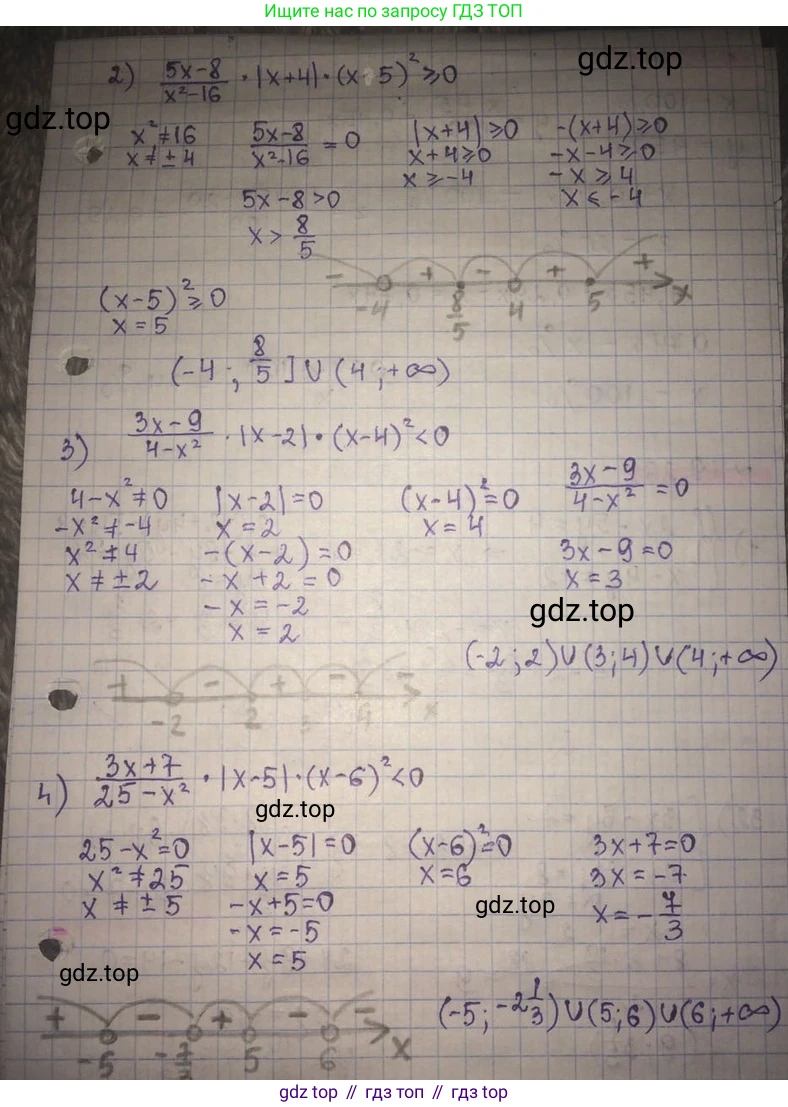 Ищите нас по запросу ГДЗ ТОП
gdz.top
gdz.top
2) (5x-8)/(x²-16) · |x+4| · (x-5)² ≥ 0
x² ≠ 16
x ≠ ± 4
(5x-8)/(x²-16) = 0
5x-8 > 0
x > 8/5
|x+4| ≥ 0
x+4 ≥ 0
x ≥ -4
-(x+4) ≥ 0
-x-4 ≥ 0
-x ≥ 4
x ≤ -4
(x-5)² ≥ 0
x = 5
- + - + +
-4 8/5 4 5 x
(-4; 8/5] ∪ (4; +∞)
3) (3x-9)/(4-x²) · |x-2| · (x-4)² < 0
4-x² ≠ 0
-x² ≠ -4
x² ≠ 4
x ≠ ± 2
|x-2| = 0
x = 2
-(x-2) = 0
-x+2 = 0
-x = -2
x = 2
(x-4)² = 0
x = 4
(3x-9)/(4-x²) = 0
3x-9 = 0
x = 3
gdz.top
(-2; 2) ∪ (3; 4) ∪ (4; +∞)
+ - + - -
-2 2 3 4 x
4) (3x+7)/(25-x²) · |x-5| · (x-6)² < 0
gdz.top
25-x² = 0
x² ≠ 25
x ≠ ± 5
|x-5| = 0
x = 5
-x+5 = 0
-x = -5
x = 5
(x-6)² = 0
x = 6
3x+7 = 0
3x = -7
x = -7/3
gdz.top
gdz.top
+ - + - -
-5 -7/3 5 6 x
(-5; -2 1/3) ∪ (5; 6) ∪ (6; +∞)
gdz top // гдз топ // gdz top